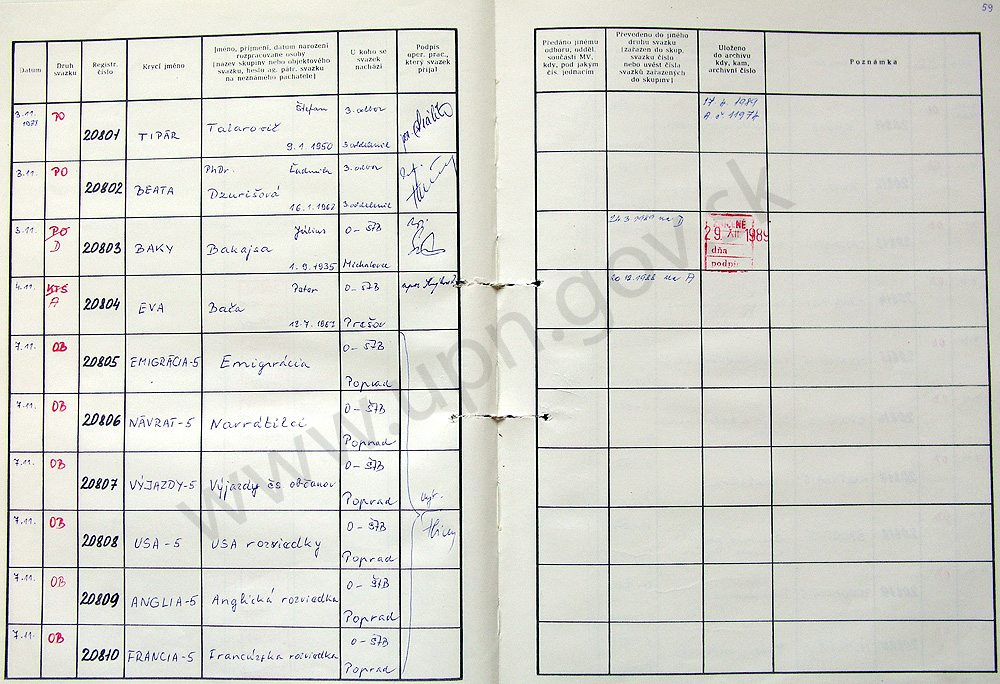 59
Datum
Druh svazku
Registr. číslo
Krycí jméno
Jméno, příjmení, datum narození
rozpracované osoby
(název skupiny nebo objektového
svazku, heslo ag. pátr. svazku
na neznámého pachatele)
U koho se svazek nachází
Podpis oper. prac., který svazek přijal
Předáno jinému
odboru, odděl.
součásti MV,
kdy, pod jakým
čís. jednacím
Převedeno do jiného
druhu svazku
(zařazen do skup.
svazku číslo
nebo uvést čísla
svazků zařazených
do skupiny)
Uloženo
do archivu
kdy, kam,
archivní číslo
Poznámka
3.11. 1988 PO 20801 TIPÁR Štefan Talarovič 9.1.1950 3. odbor 3 oddelenie
A. č. 11974
3.11. PO 20802 BEATA PhDr. Ľudmila Dzurišová 16.1.1962 3. odbor 3. oddelenie
3.11. PO D 20803 BAKY Július Bakajsa 1.9.1935 O-ŠTB Michalovce
24.3.1989 na D
29. XII. 1989
dňa
podpis
4.11. KTS A 20804 EVA Peter Bača O-ŠTB Prešov
20.12.1988 na A
7.11. OB 20805 EMIGRÁCIA-5 Emigrácia O-ŠTB Poprad
7.11. OB 20806 NÁVRAT-5 Navrátilci O-ŠTB Poprad
7.11. OB 20807 VÝJAZDY-5 Výjazdy čs občanov O-ŠTB Poprad
7.11. OB 20808 USA-5 USA rozviedky O-ŠTB Poprad
7.11. OB 20809 ANGLIA-5 Anglická rozviedka O-ŠTB Poprad
7.11. OB 20810 FRANCIA-5 Francúzska rozviedka O-ŠTB Poprad
www.upn.gov.sk